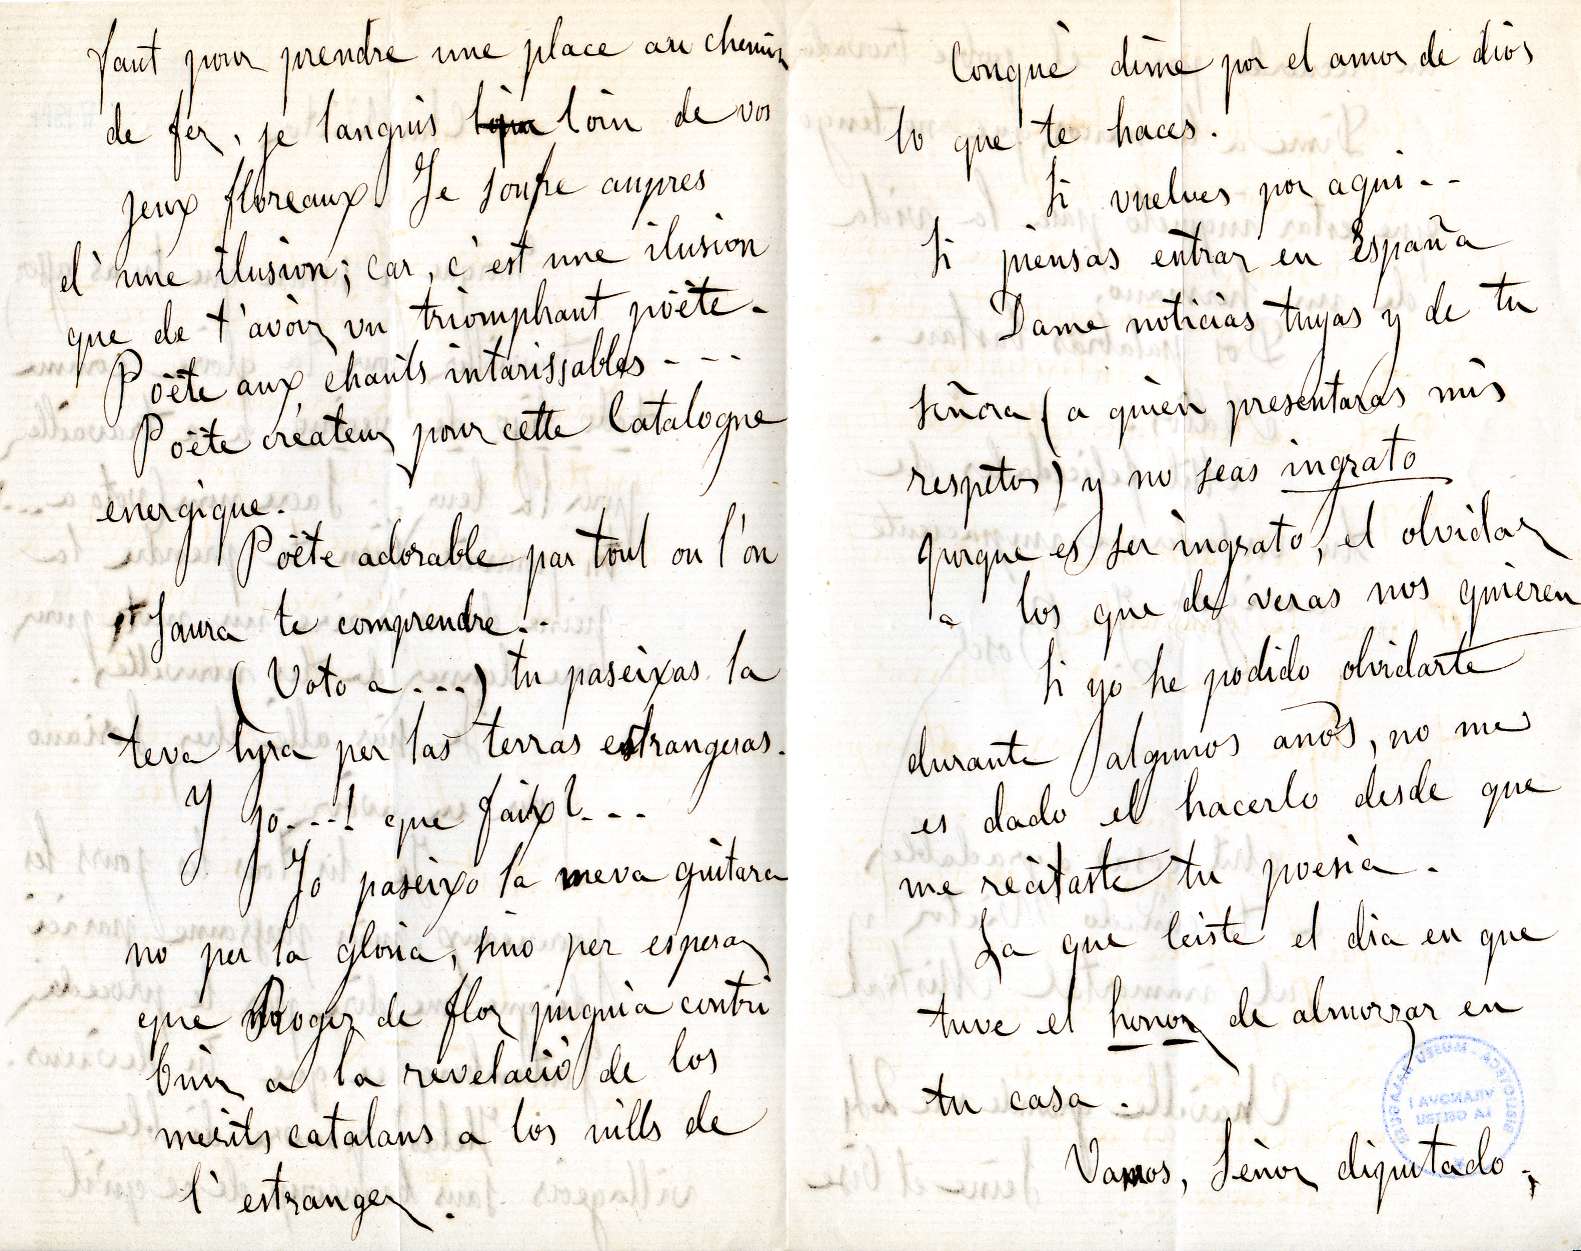 faut pour prendre une place au chemin
de fer, je languis loin de vos
jeux floreaux. Je soufre aupres
d'une ilusion; car, c'est une ilusion
que de t'avoir vu triomphant poëte.
Poëte aux chants intarissables - - -
Poëte créateur pour cette Catalogne
energique.
Poëte adorable par tout ou l'on
saura te comprendre..
(Voto a...) tu paseixas la
teva lyra per las terras estrangeras.
Y jo...! que faix?...
Jo paseixo la meva guitara
no per la gloria, sino per esperar
que Roger de flor puguia contri
buir a la revelació de los
merits catalans a los ulls de
l'estranger.
Conque dime por el amor de dios
lo que te haces.
Si vuelves por aqui..
Si piensas entrar en España
Dame noticias tuyas y de tu
señora (a quien presentaras mis
respetos) y no seas ingrato
porque es ser ingrato, el olvidar
a los que de veras nos quieren
Si yo he podido olvidarte
durante algunos años, no me
es dado el hacerlo desde que
me recitaste tu poesia.
La que leiste el dia en que
tuve el honor de almorzar en
tu casa.
Vamos, Señor diputado,
BIBLIOTECA - MUSEU BALAGUER
VILANOVA I
LA GELTRÚ